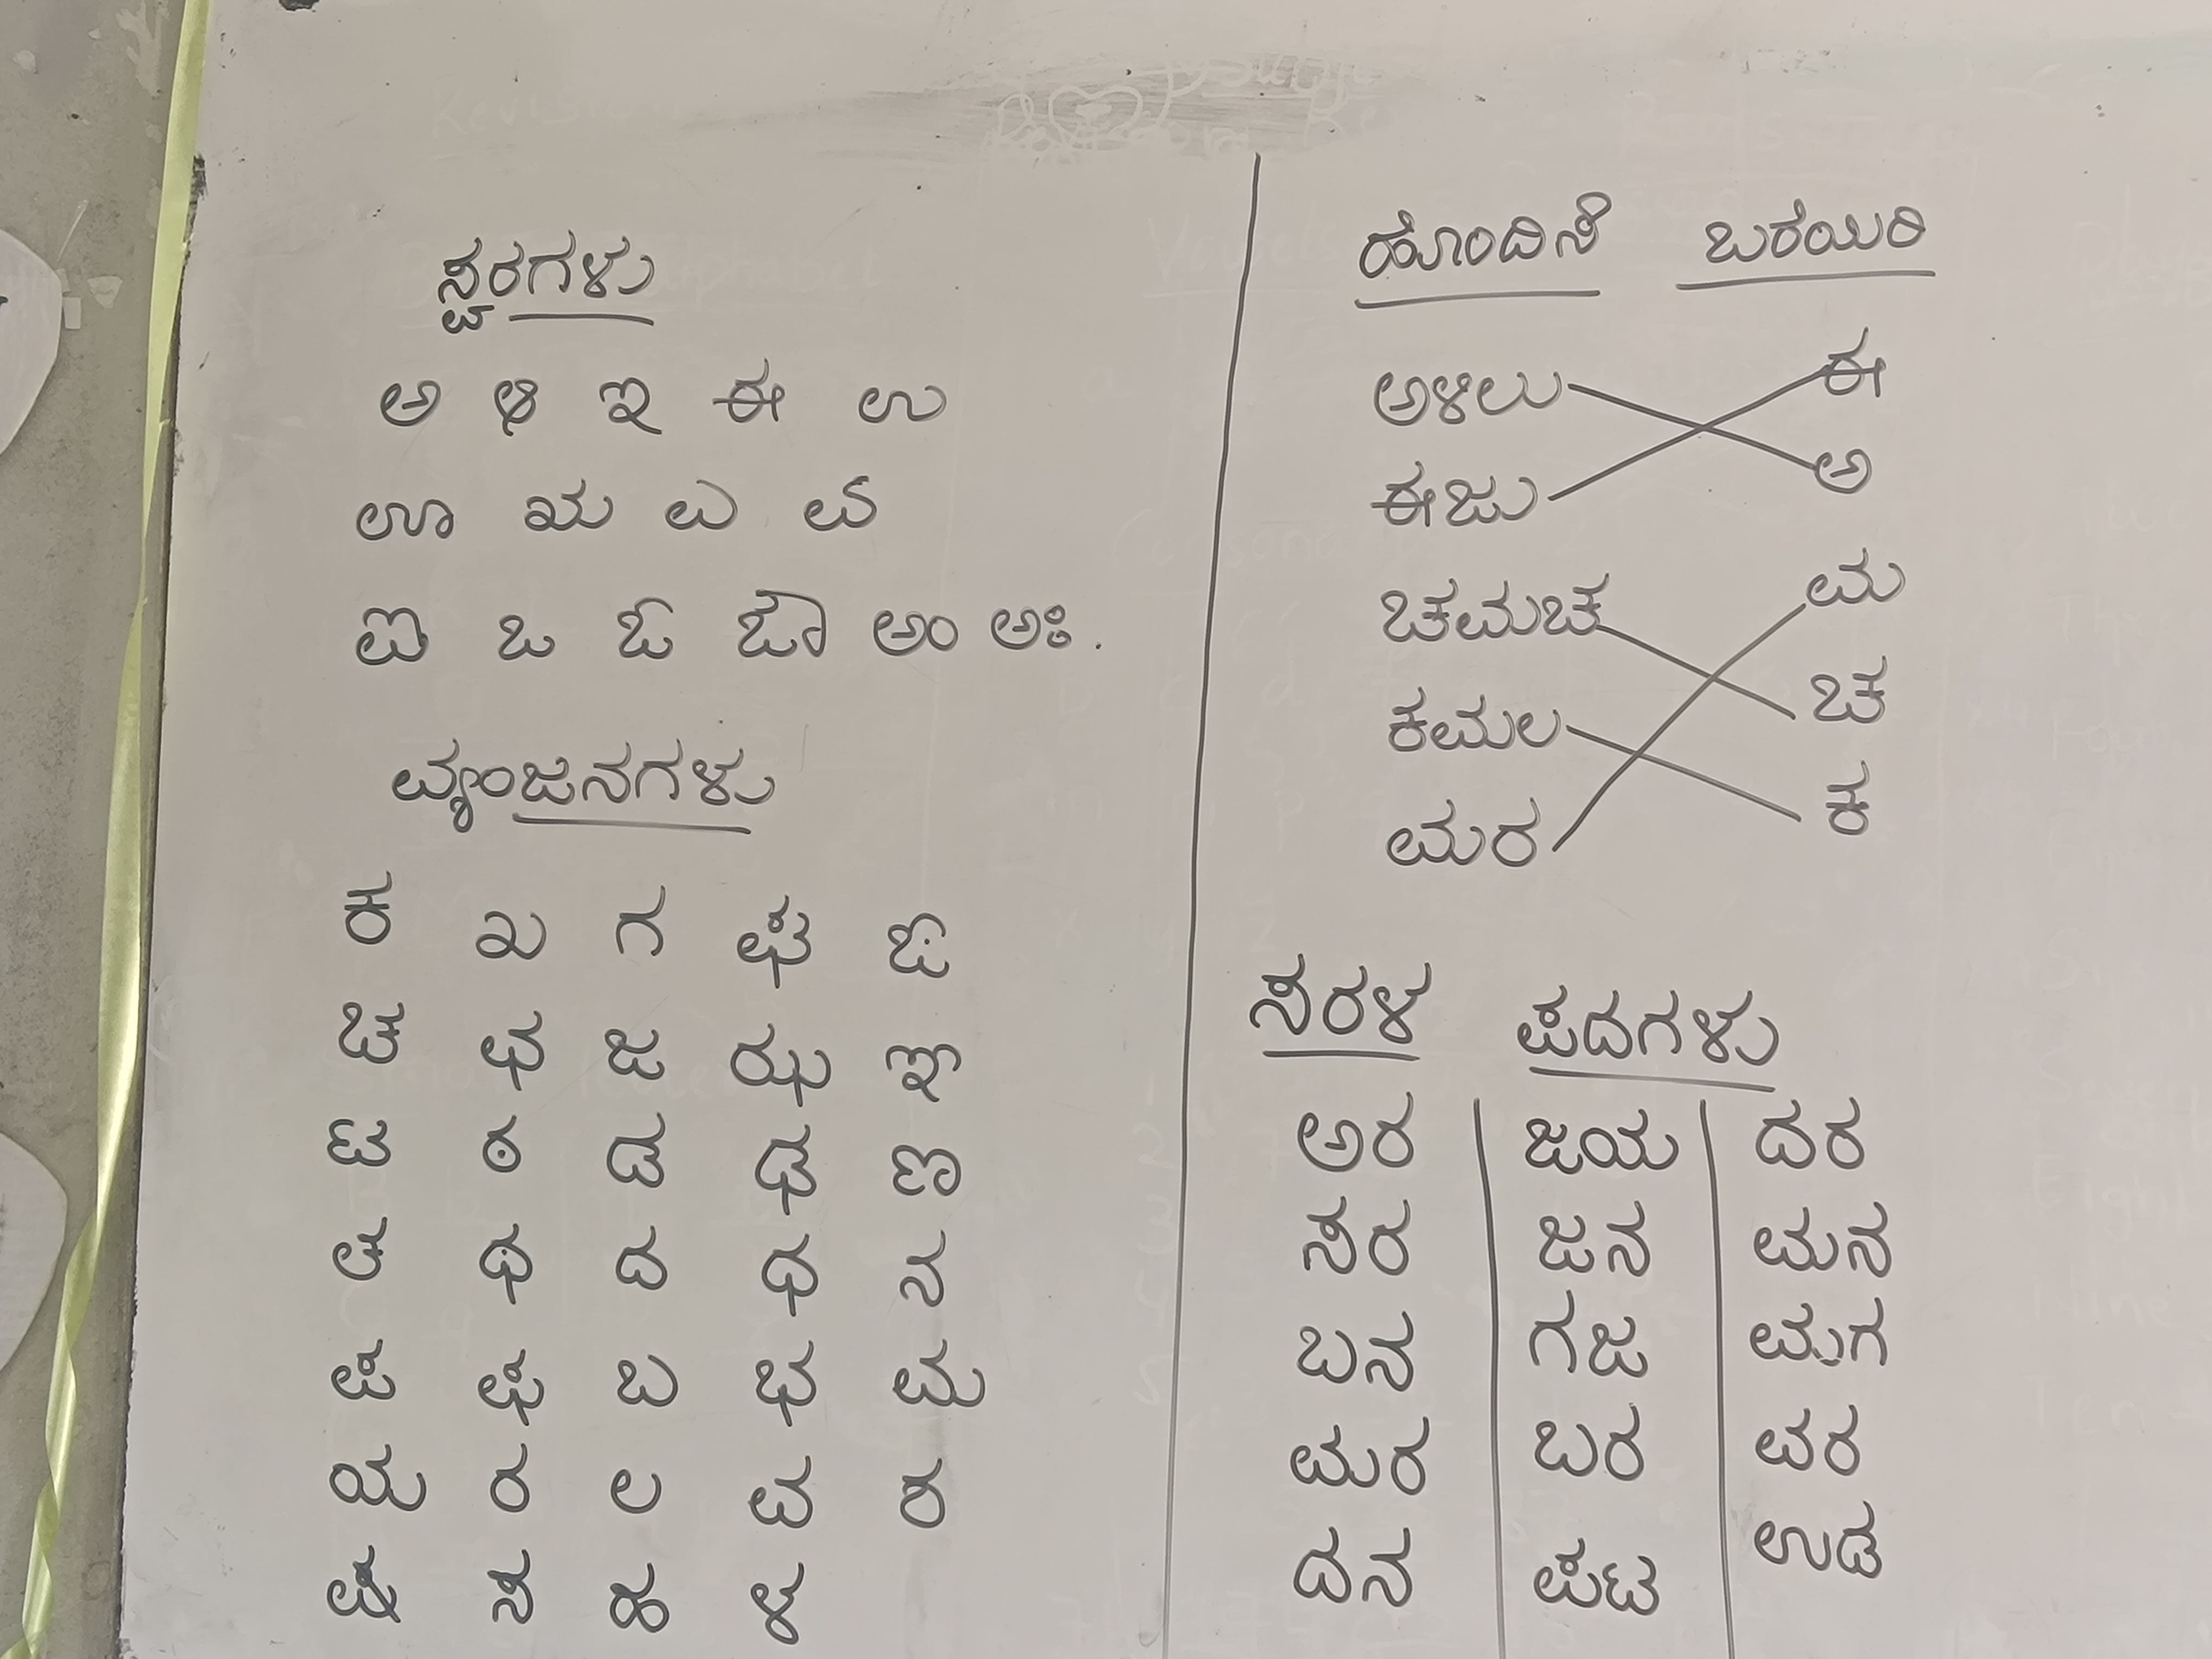 ಸ್ವರಗಳು
ಅ ಆ ಇ ಈ ಉ
ಊ ಋ ಎ ಏ
ಐ ಒ ಓ ಔ ಅಂ ಅಃ.
ವ್ಯಂಜನಗಳು
ಕ ಖ ಗ ಘ ಙ
ಚ ಛ ಜ ಝ ಞ
ಟ ಠ ಡ ಢ ಣ
ತ ಥ ದ ಧ ನ
ಪ ಫ ಬ ಭ ಮ
ಯ ರ ಲ ವ ಶ
ಷ ಸ ಹ ಳ
ಹೊಂದಿಸಿ ಬರೆಯಿರಿ
ಅಳಿಲು ಈ
ಈಜು ಅ
ಚಮಚ ಮ
ಕಮಲ ಚ
ಮರ ಕ
ಸರಳ ಪದಗಳು
ಅರ ಜಯ ದರ
ಸರ ಜನ ಮನ
ಬನ ಗಜ ಮಗ
ಮರ ಬರ ವರ
ದಿನ ಪಟ ಉಡ